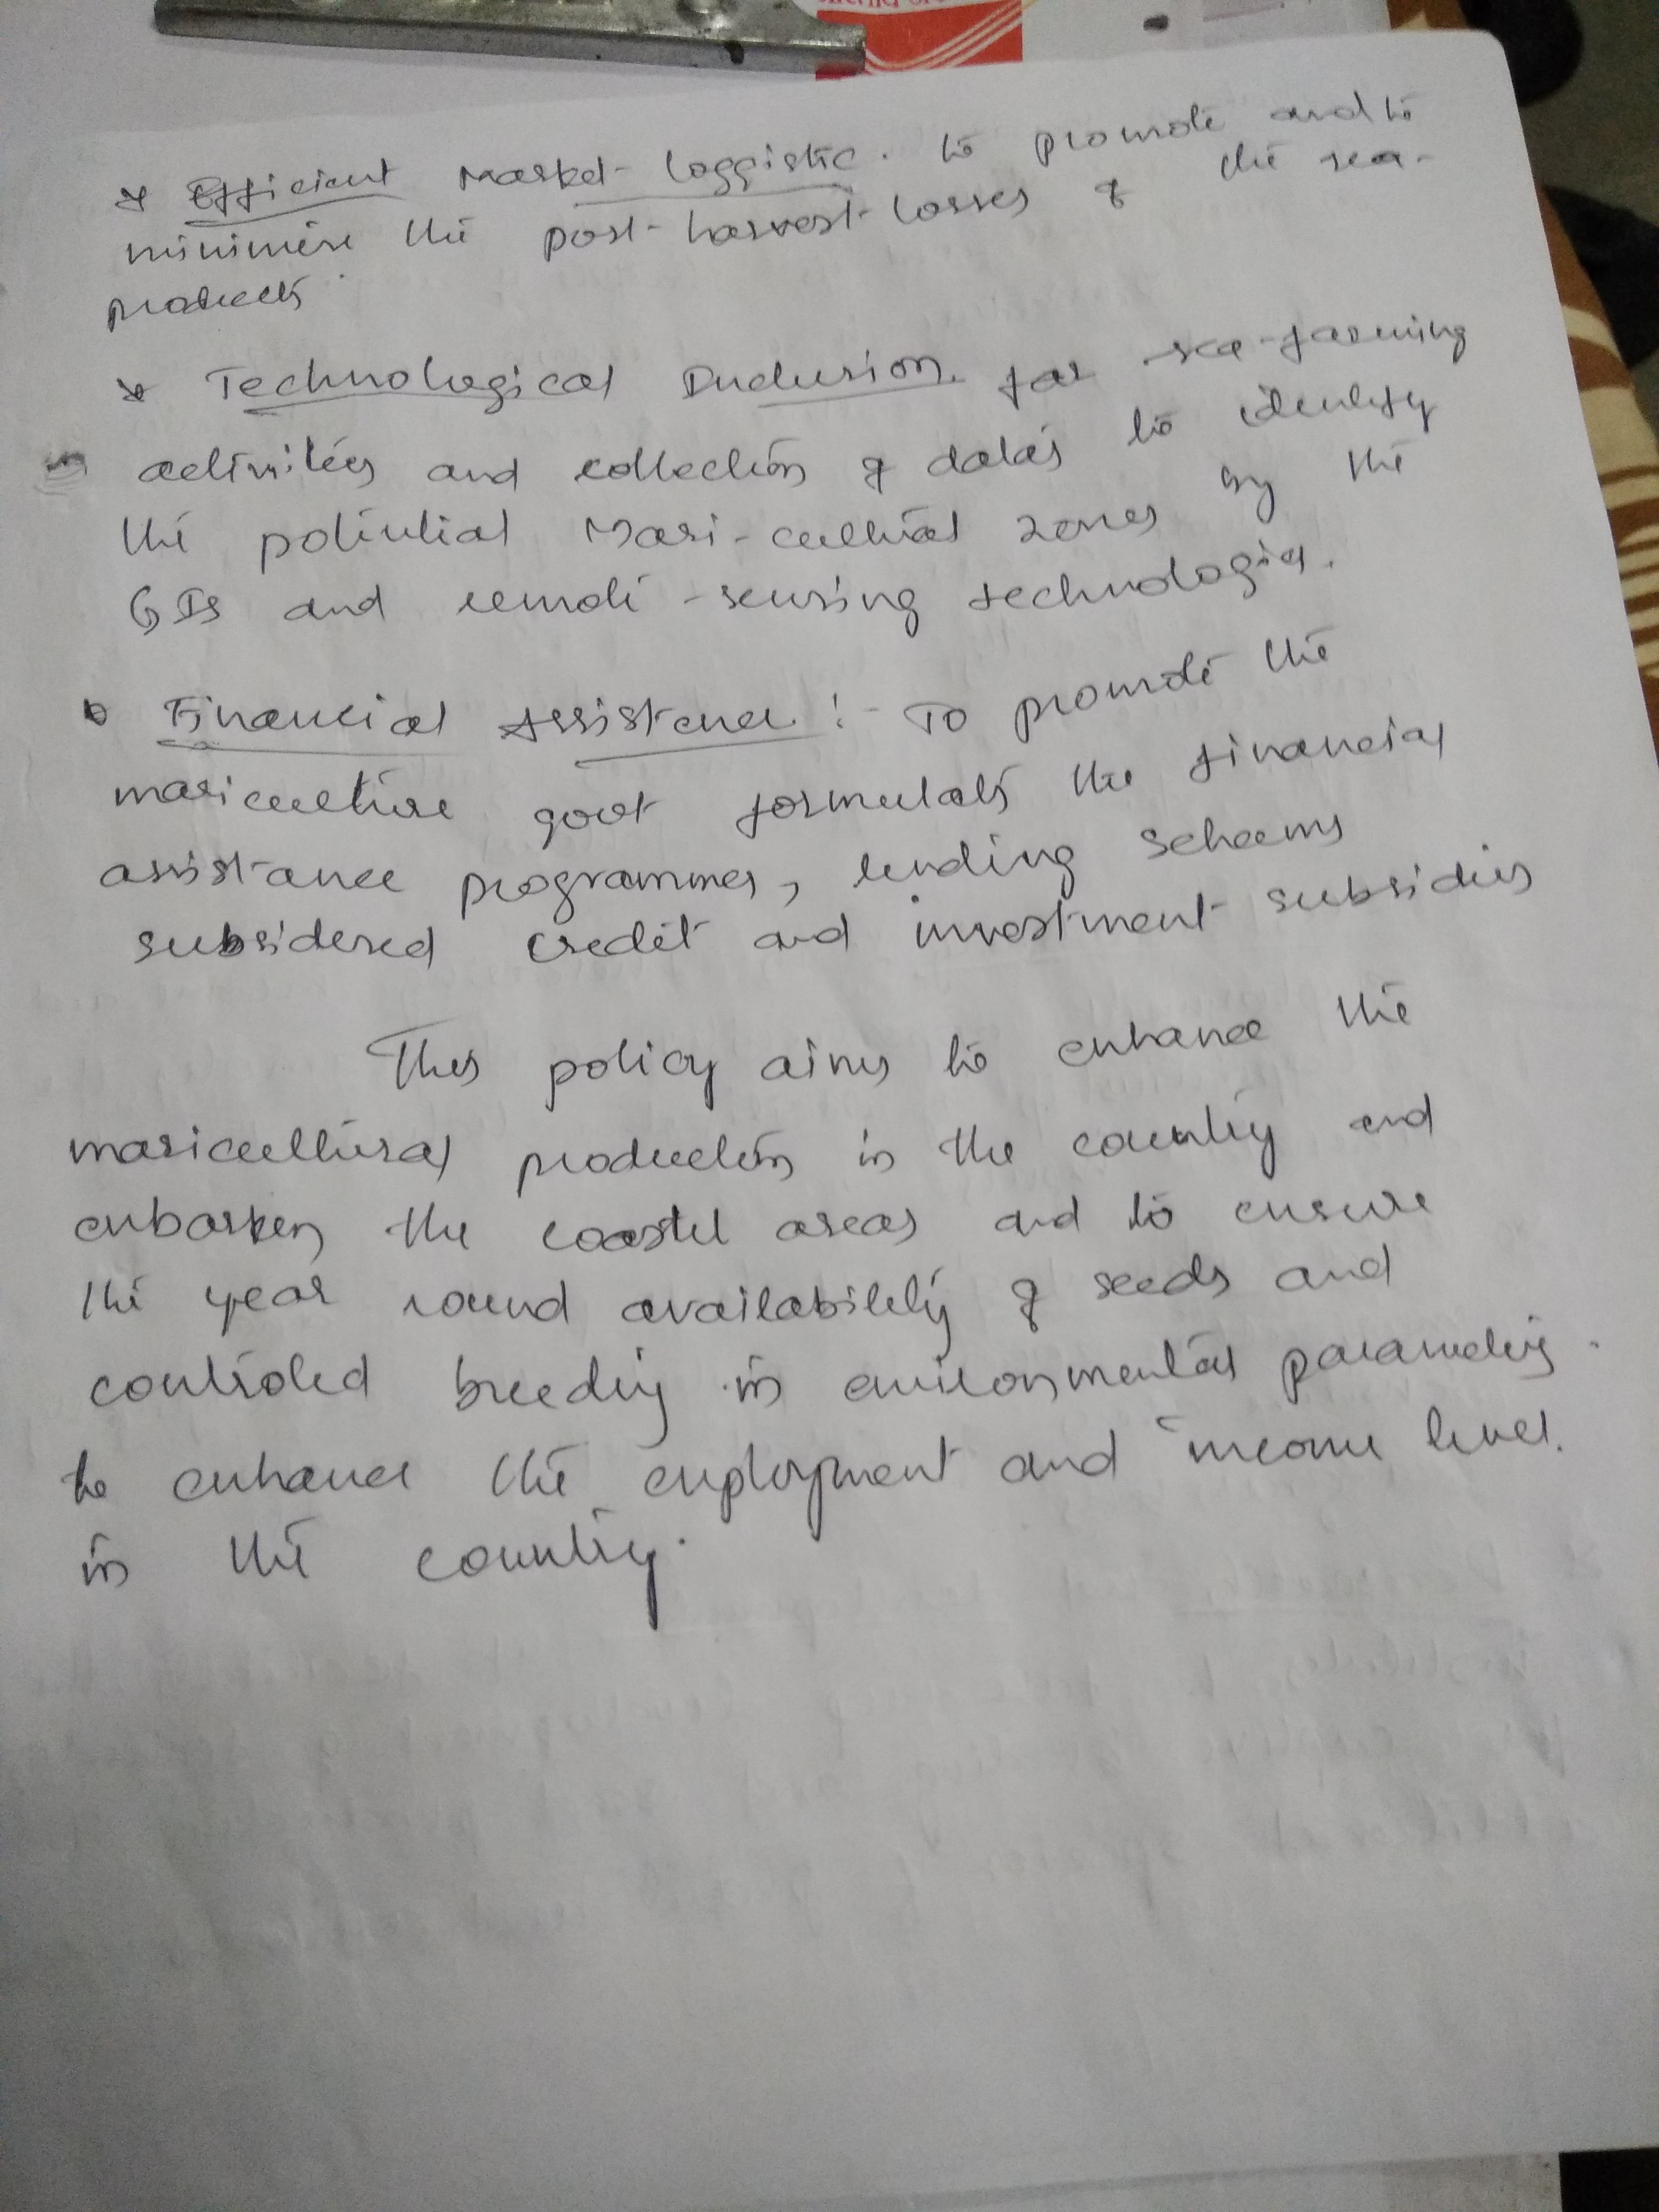 * Efficient Market loggistic. to promote and to
minimise the post-harvest losses of the sea-
products.
* Technological Inclusion for sea-farming
activities and collection of data's to identify
the potential Mari-cultural zones by the
GIS and remote-sensing technologies.
Financial Assistance :- To promote the
mariculture govt formulates the financial
assistance programmes, lending schems
subsidered credit and investment subsidies
This policy aims to enhance the
maricultural production in the country and
the coastel areas and to ensure
the year round availability of seeds and
controled breeding in environmental parameters.
to enhance the employment and income level.
in the country.